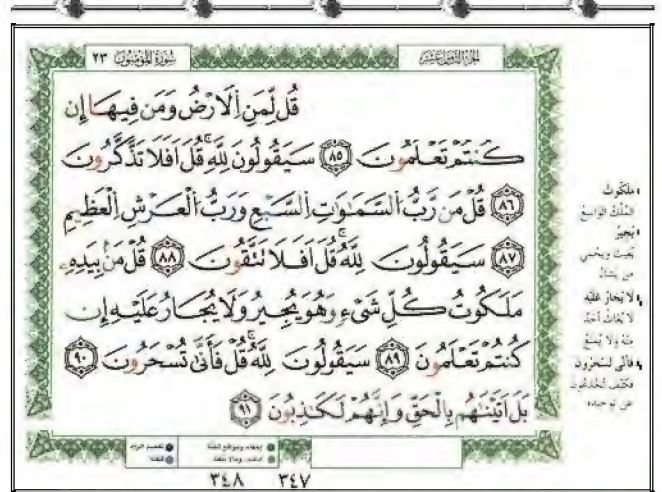 سُورَةُ المُؤْمِنُونَ ٢٣
قُل لِّمَنِ اِ۬لَارْضُ وَمَن فِيهَا إِن
كُنتُمْ تَعْلَمُونَ ﴿٨٥﴾ سَيَقُولُونَ لِلهِۖ قُلَ اَفَلَا تَذَّكَّرُونَ
﴿٨٦﴾ قُلْ مَن رَّبُّ السَّمَٰوَٰتِ اِ۬لسَّبْعِ وَرَبُّ الْعَرْشِ اِ۬لْعَظِيمِ
﴿٨٧﴾ سَيَقُولُونَ لِلهِۖ قُلَ اَفَلَا تَتَّقُونَ ﴿٨٨﴾ قُلْ مَنۢ بِيَدِهِۦ
مَلَكُوتُ كُلِّ شَيْءٖ وَهُوَ يُجِيرُ وَلَا يُجَارُ عَلَيْهِ إِن
كُنتُمْ تَعْلَمُونَ ﴿٨٩﴾ سَيَقُولُونَ لِلهِۖ قُلْ فَأَنَّىٰ تُسْحَرُونَ ﴿٩٠﴾
بَلَ اَتَيْنَٰهُم بِالْحَقِّ وَإِنَّهُمْ لَكَٰذِبُونَ ﴿٩١﴾
مَلَكُوتُ
المُلْكُ الوَاسِعُ
يُجِيرُ
يُغِيثُ وَيَحْمِي
مَن يَشَاءُ
لَا يُجَارُ عَلَيْهِ
لَا يُغَاثُ أَحَدٌ
مِنْهُ وَلَا يُمْنَعُ
فَأَنَّى تُسْحَرُونَ
فَكَيْفَ تُخْدَعُونَ
عَن تَوْحِيدِهِ
٣٤٨ ٣٤٧